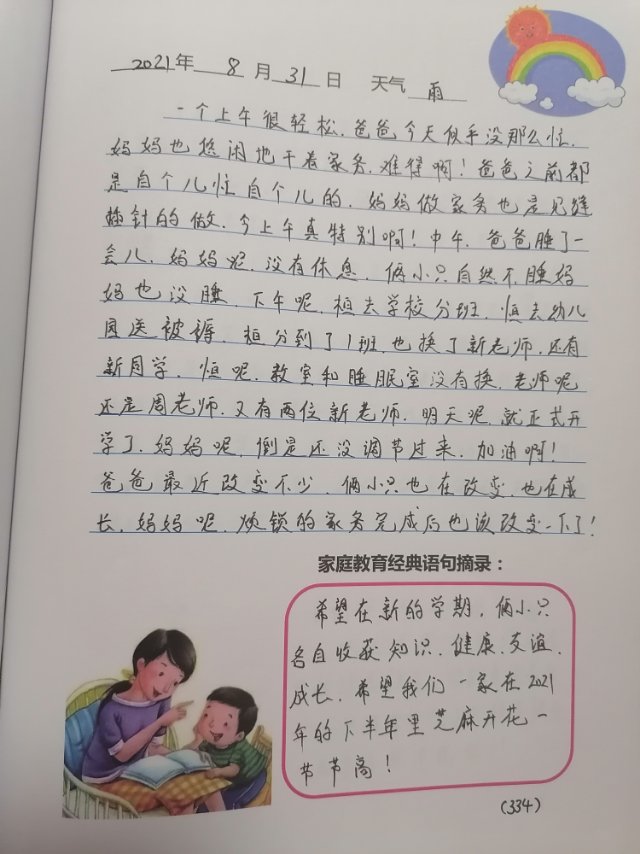 2021年 8 月 31 日 天气 雨
一个上午很轻松.爸爸今天似乎没那么忙.
妈妈也悠闲地干着家务.难得啊!爸爸之前都
是自个儿忙自个儿的.妈妈做家务也是见缝
插针的做.今上午真特别啊!中午.爸爸睡了一
会儿.妈妈呢.没有休息.俩小只自然不睡妈
妈也没睡.下午呢.桓去学校分班.恒去幼儿
园送被褥.桓分到了1班.也换了新老师.还有
新同学.恒呢.教室和睡眠室没有换.老师呢
还是周老师.又有两位新老师.明天呢.就正式开
学了.妈妈呢.倒是还没调节过来.加油啊!
爸爸最近改变不少.俩小只也在改变.也在成
长.妈妈呢.烦锁的家务完成后也该改变一下了!
家庭教育经典语句摘录:
希望在新的学期.俩小只
各自收获知识.健康.友谊.
成长.希望我们一家在2021
年的下半年里芝麻开花一
节节高!
(334)